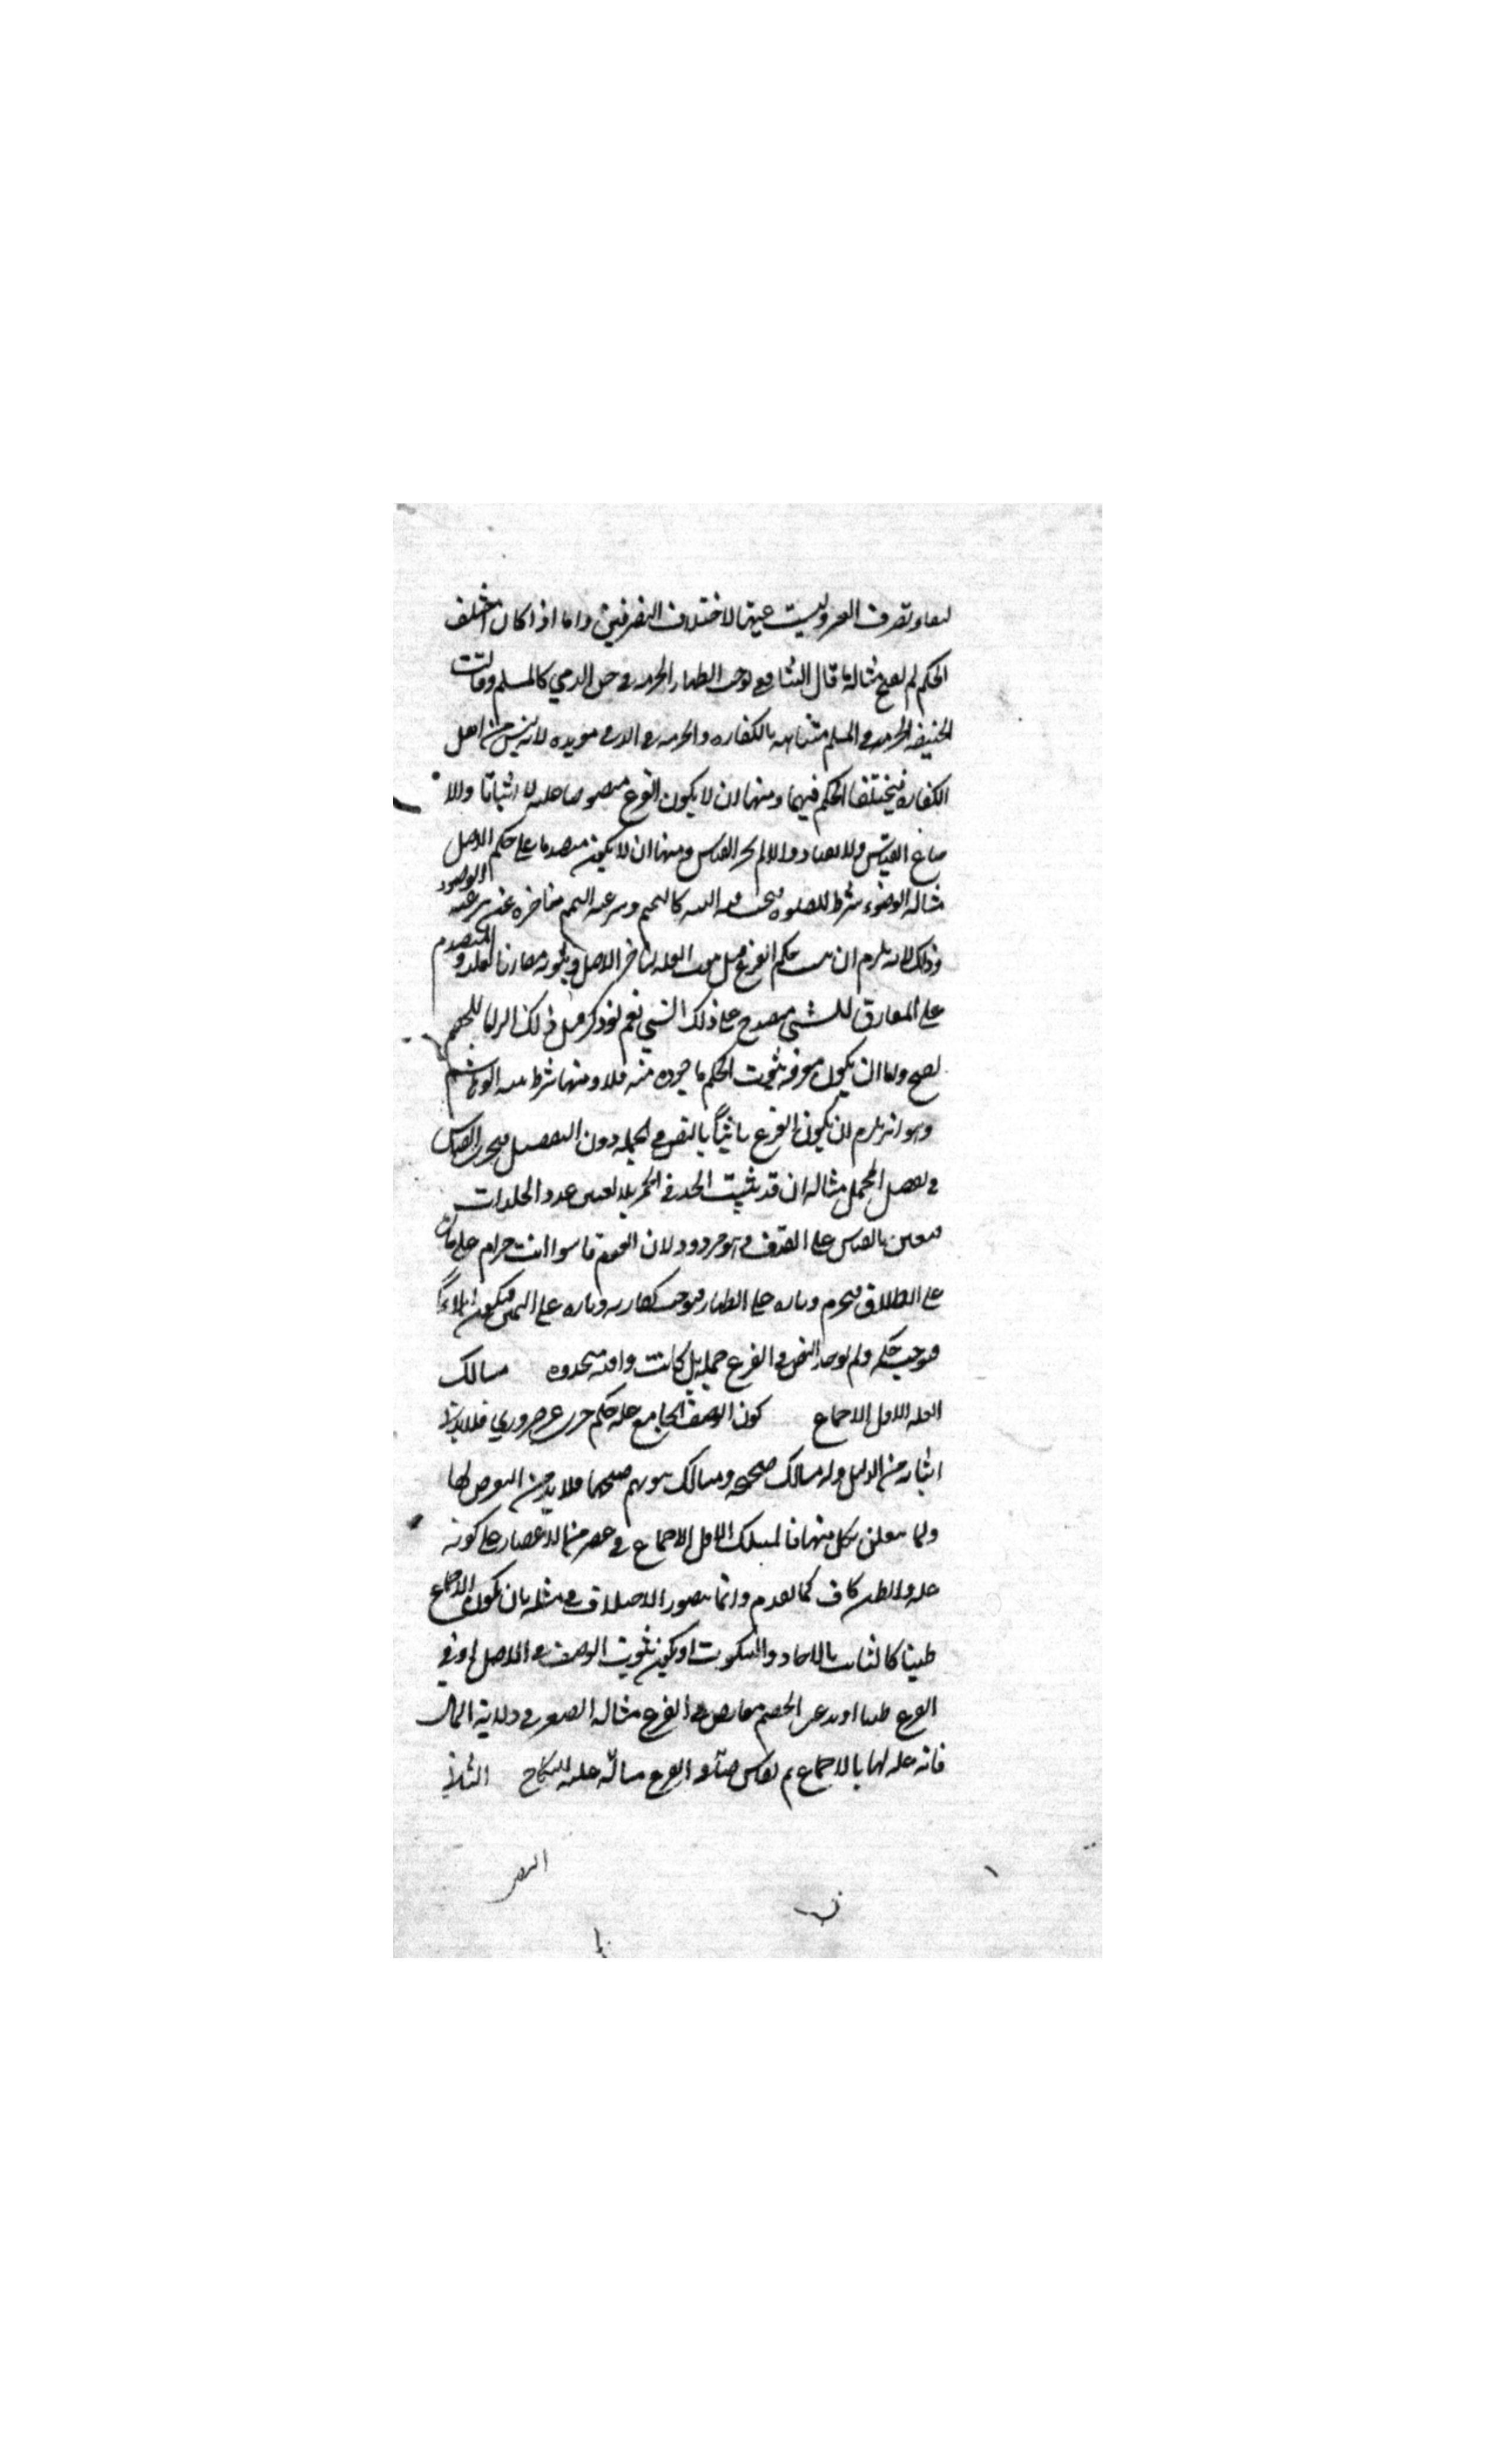 لنفاذ تصرف الغير وليست عينها لاختلاف التصرفين واما اذا كان اختلف
الحكم لم يصح مثاله ما قال الشافعي يوجب الظهار الحرمه في حق الذمي كالمسلم وقالت
الحنيفه الحرمه في المسلم متناهيه بالكفاره والحرمه في الذمي مؤبده لانه ليس من اهل
الكفاره فيختلف الحكم فيهما ومنها ان لا يكون الفرع منصوصا عليه لا اثباتا والا
ضاع القياس ولا نفيا والا لم يجز القياس ومنها ان لا يكون متقدما على حكم الاصل
مثاله الوضوء شرط للصلوه فيجب فيه النيه كالتيمم وشرعيه التيمم متاخره عن شرعيه الوضوء
وذلك لانه يلزم ان يثبت حكم الفرع قبل ثبوت العله لتاخر الاصل ولكونه مقارنا للعله و المتقدم
على المقارن للشيء متقدم على ذلك الشيء نعم لو ذكر مثل ذلك الزاما للخصم
لصح واما ان يكون معرفه ثبوت الحكم ماخوذه منه فلا ومنها شرط ابو هاشم
وهو انه يلزم ان يكون الفرع ثابتا بالنص في الجمله دون التفصيل فيجوز القياس
في تفصيل المجمل مثاله ان قد يثبت الحد في الخمر بلا تعيين عدد الجلدات
فتعين بالقياس على القذف وهو مردود لان القوم قاسوا انت حرام على تاره
على الطلاق فيحرم وتاره على الظهار فيوجب كفارته وتاره على اليمين فيكون ايلاءً
فيوجب حكمه ولم يوجد النص في الفرع جمله بل كانت واقعه متجدده مسالك
العله الاول الاجماع كون الوصف الجامع عله حكم خبري غير ضروري فلا بد في
اثباته من الدليل وله مسالك صحيحه ومسالك يتوهم صحتها فلا بد من التعرض لها
ولما يتعلق بكل منها فالمسلك الاول الاجماع في عصر من الاعصار على كونه
عله والظن كاف كما تقدم وانما يتصور الاختلاف في مثله بان يكون الاجماع
ظنيا كالثابت بالاحاد والسكوت او يكون ثبوت الوصف في الاصل او في
الفرع ظنيا او يدعى الخصم معارض في الفرع مثاله الصغر في ولاية المال
فانه عله لها بالاجماع ثم يقاس عليه النكاح الثاني